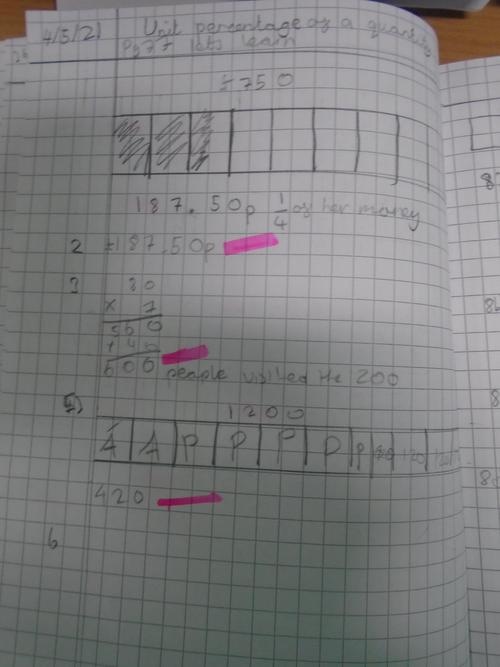 4/5/21 Unit percentage of a quantity
Pg 77 lets learn
£750
187.50p 1/4 of her money
2 £187.50p
3 80
x 7
560
+ 40
600 people visited the zoo
5) 1200
A A P P P P P 120 120 120
420
6